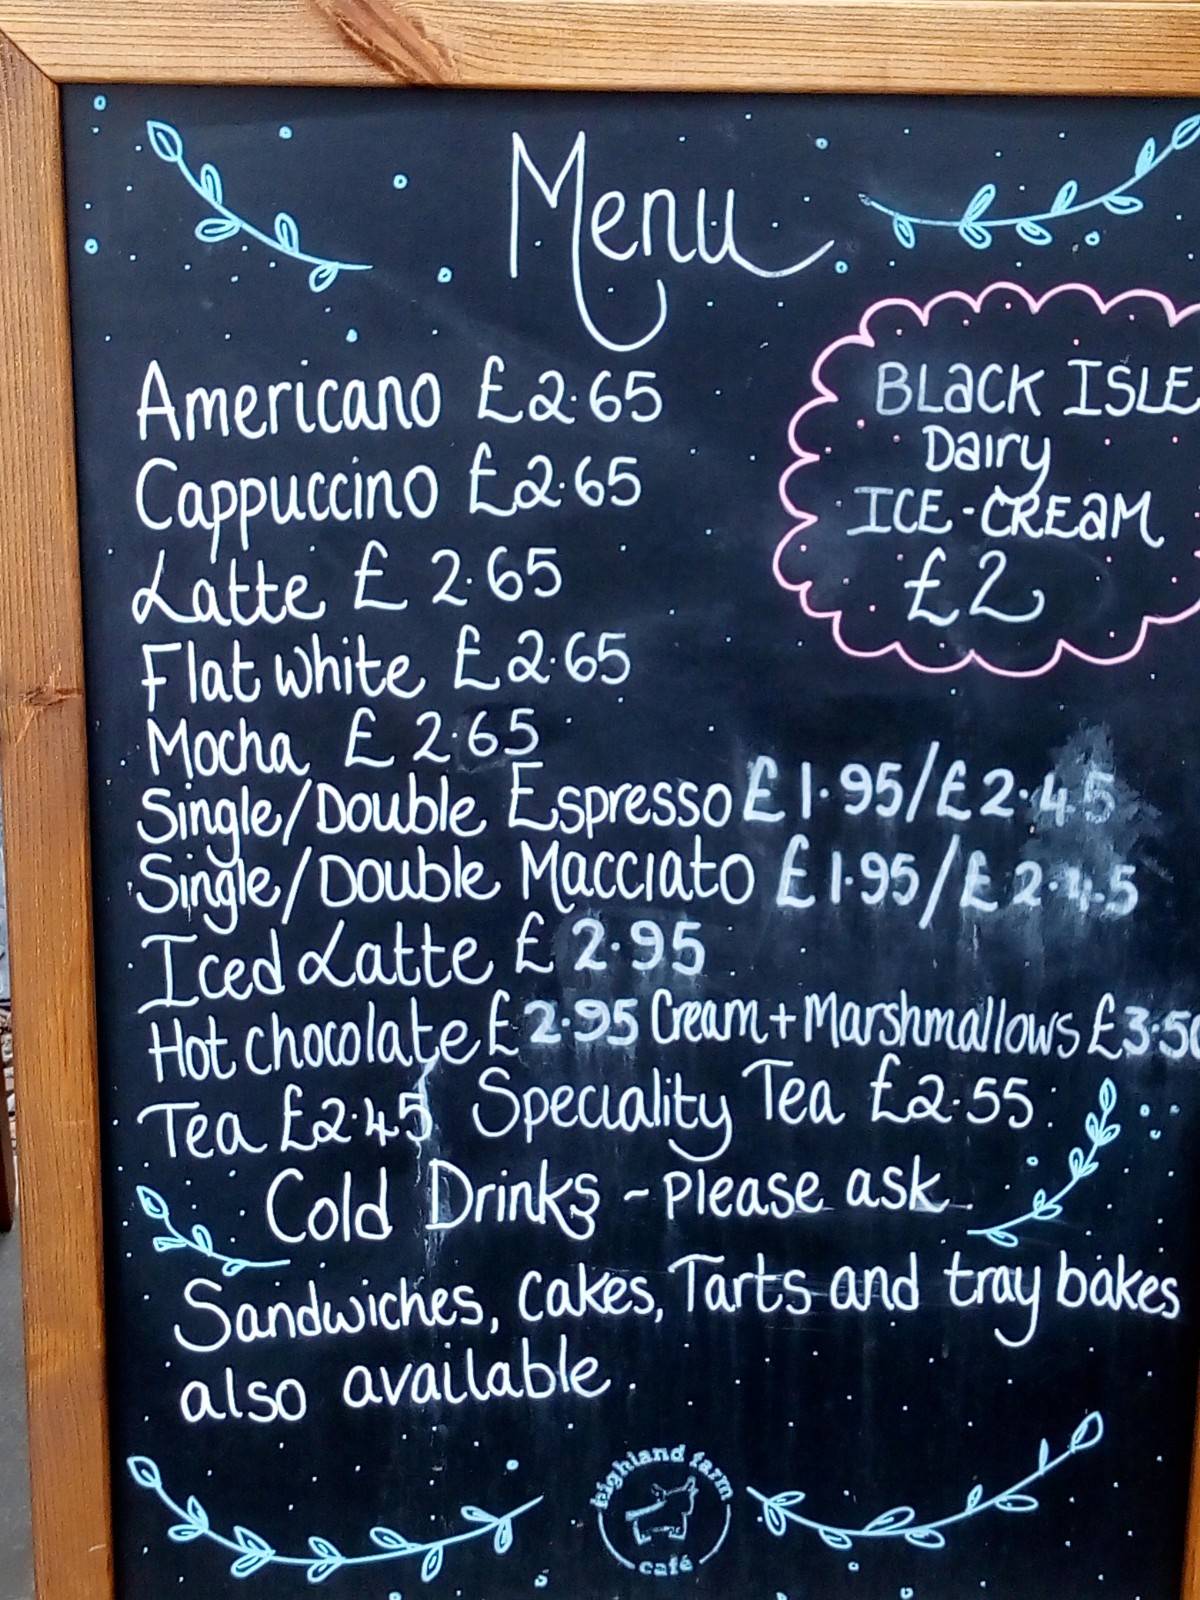 Menu
Americano £2.65
Cappuccino £2.65
Latte £2.65
Flat white £2.65
Mocha £2.65
Single/Double Espresso £1.95/£2.45
Single/Double Macciato £1.95/£2.45
Iced Latte £2.95
Hot chocolate £2.95 Cream + Marshmallows £3.50
Tea £2.45 Speciality Tea £2.55
Cold Drinks - please ask
Sandwiches, cakes, Tarts and tray bakes
also available.
BLaCK ISLE
Dairy
ICE-CREaM
£2
highland farm
café